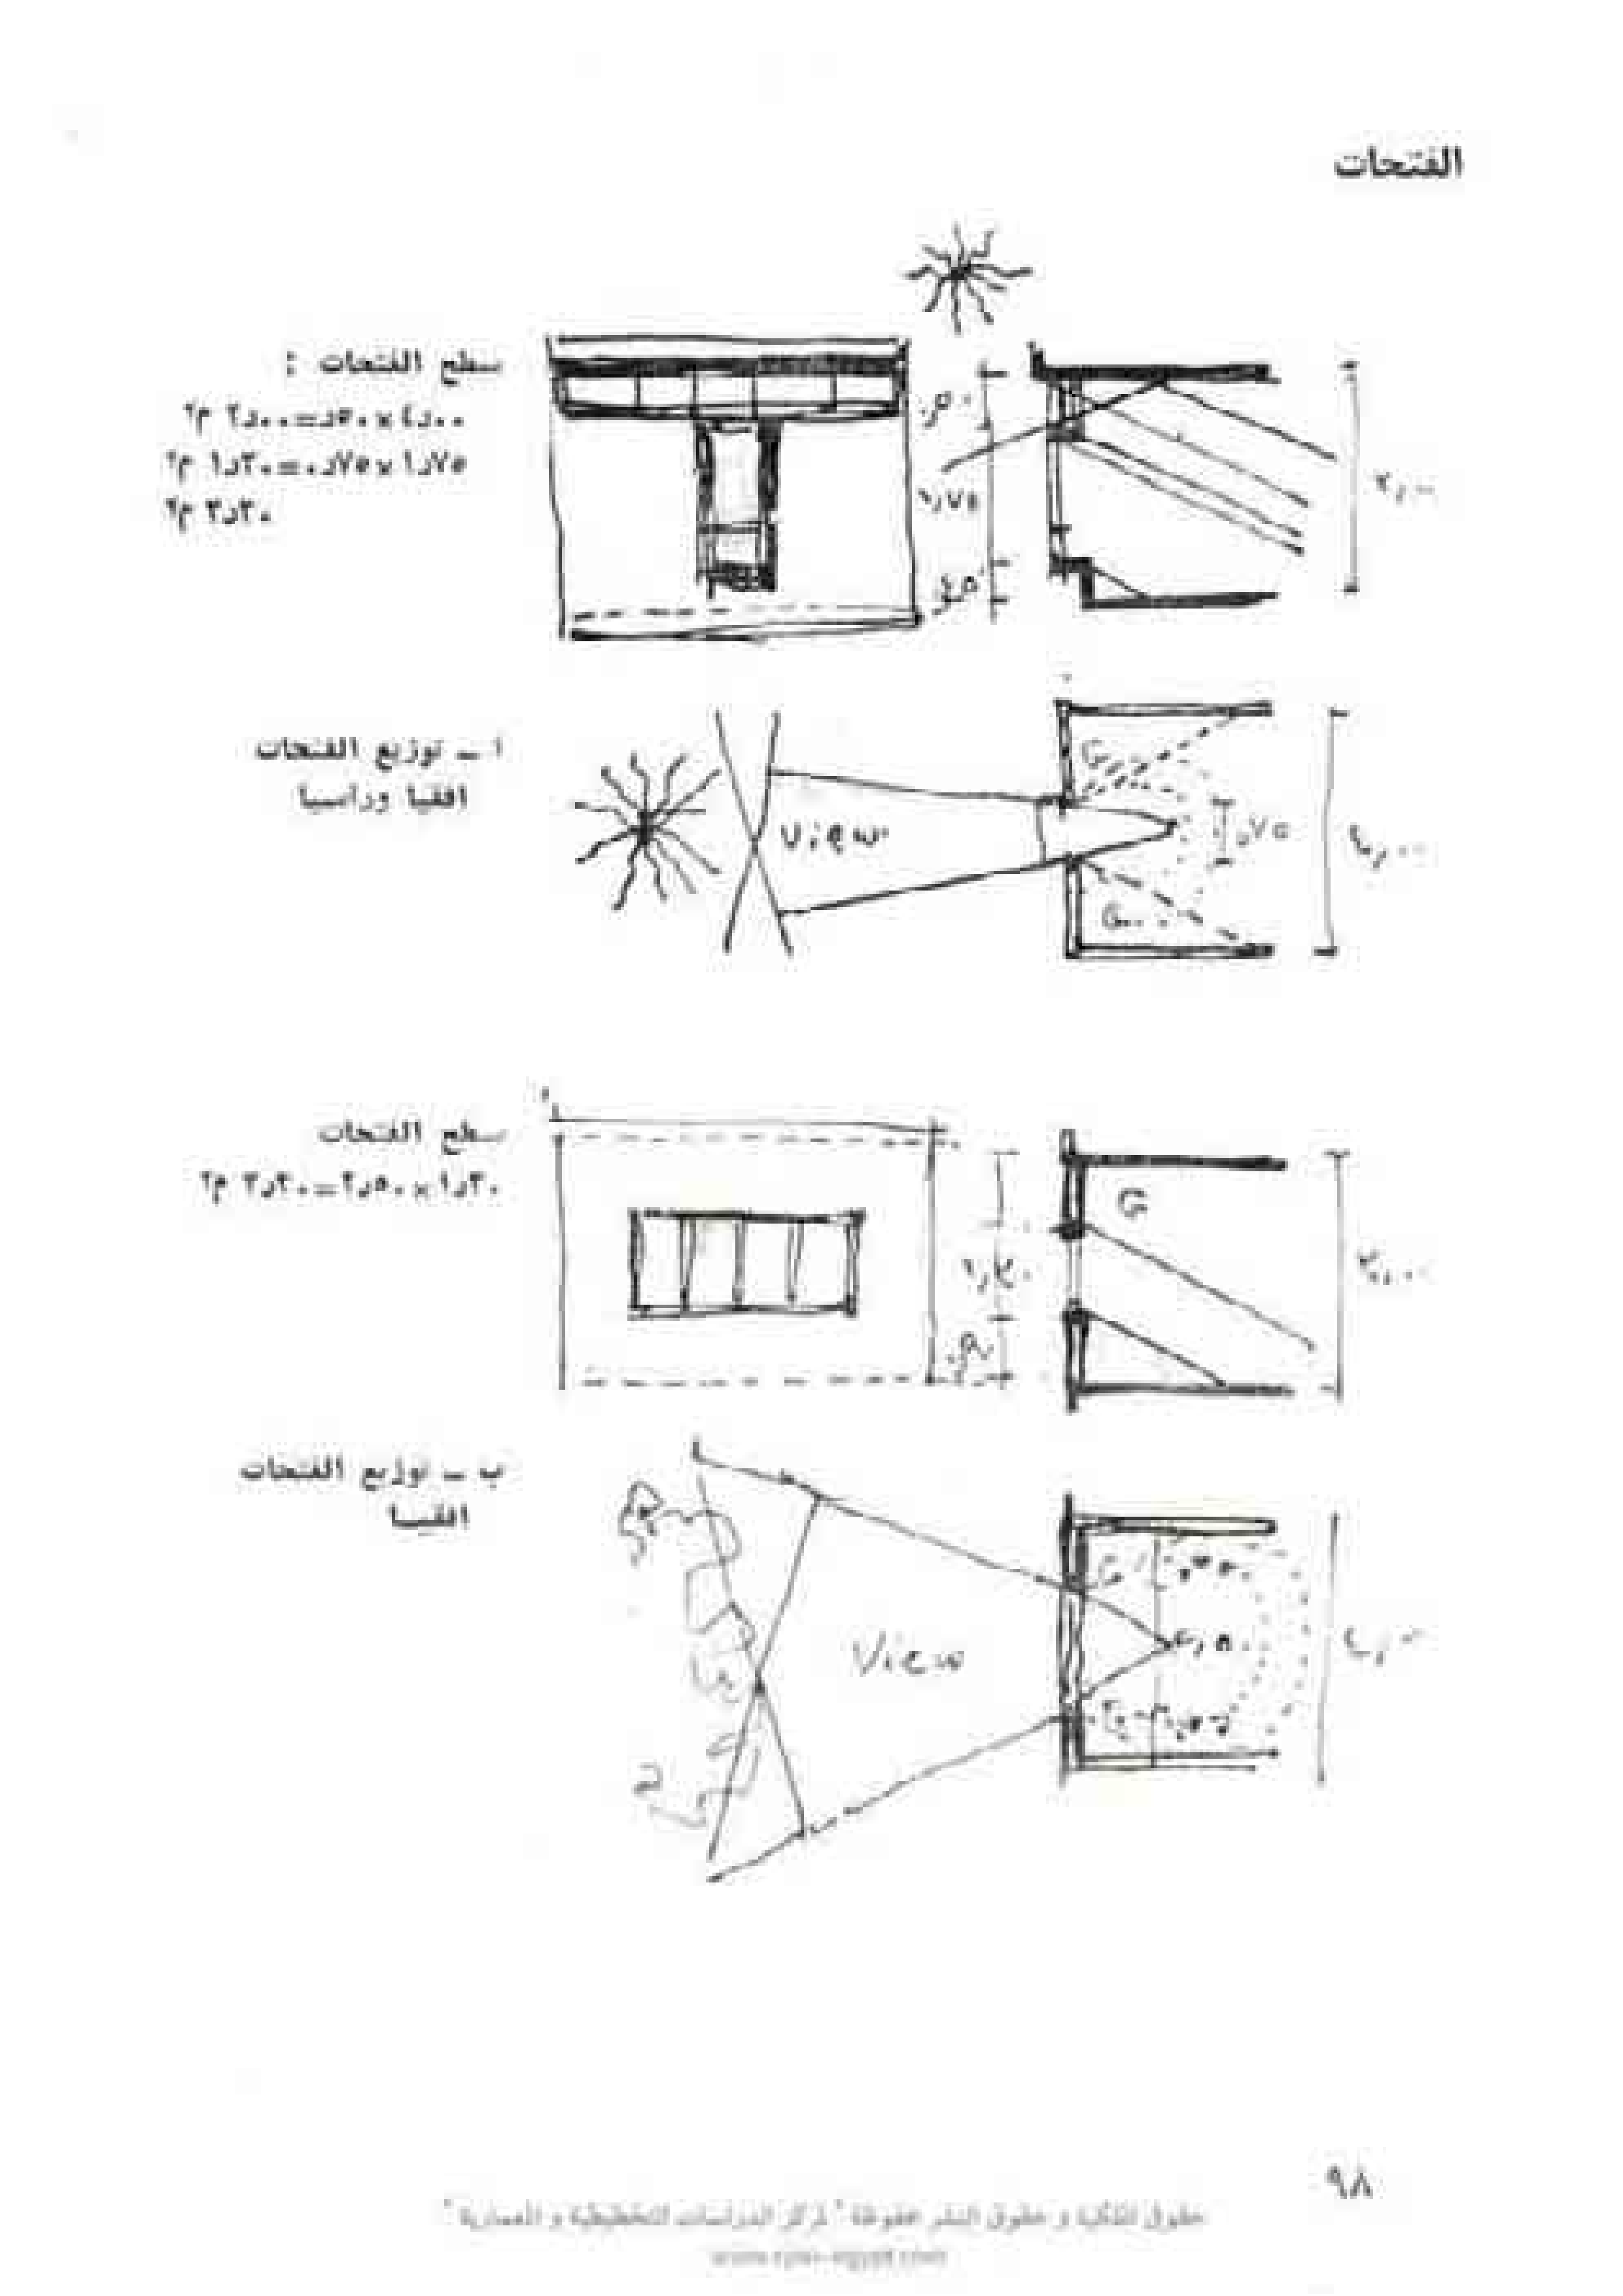 الفتحات
سطح الفتحات :
٤ر٠٠ × ٥٠ر=٢ر٠٠ م٢
١ر٧٥ × ٧٥ر٠=١ر٣٠ م٢
٣ر٣٠ م٢
٥٠ر
١ر٧٥
٤٥ر
أ ــ توزيع الفتحات
افقيا ورأسيا
View
G
٧٥ر
G
سطح الفتحات
١ر٣٠ × ٢ر٥٠=٣ر٣٠ م٢
G
ب ــ توزيع الفتحات
افقيـا
View
G
٩٨
حقوق الملكية و حقوق النشر محفوظة " لمركز الدراسات التخطيطية و المعمارية "
www.cpas-egypt.com